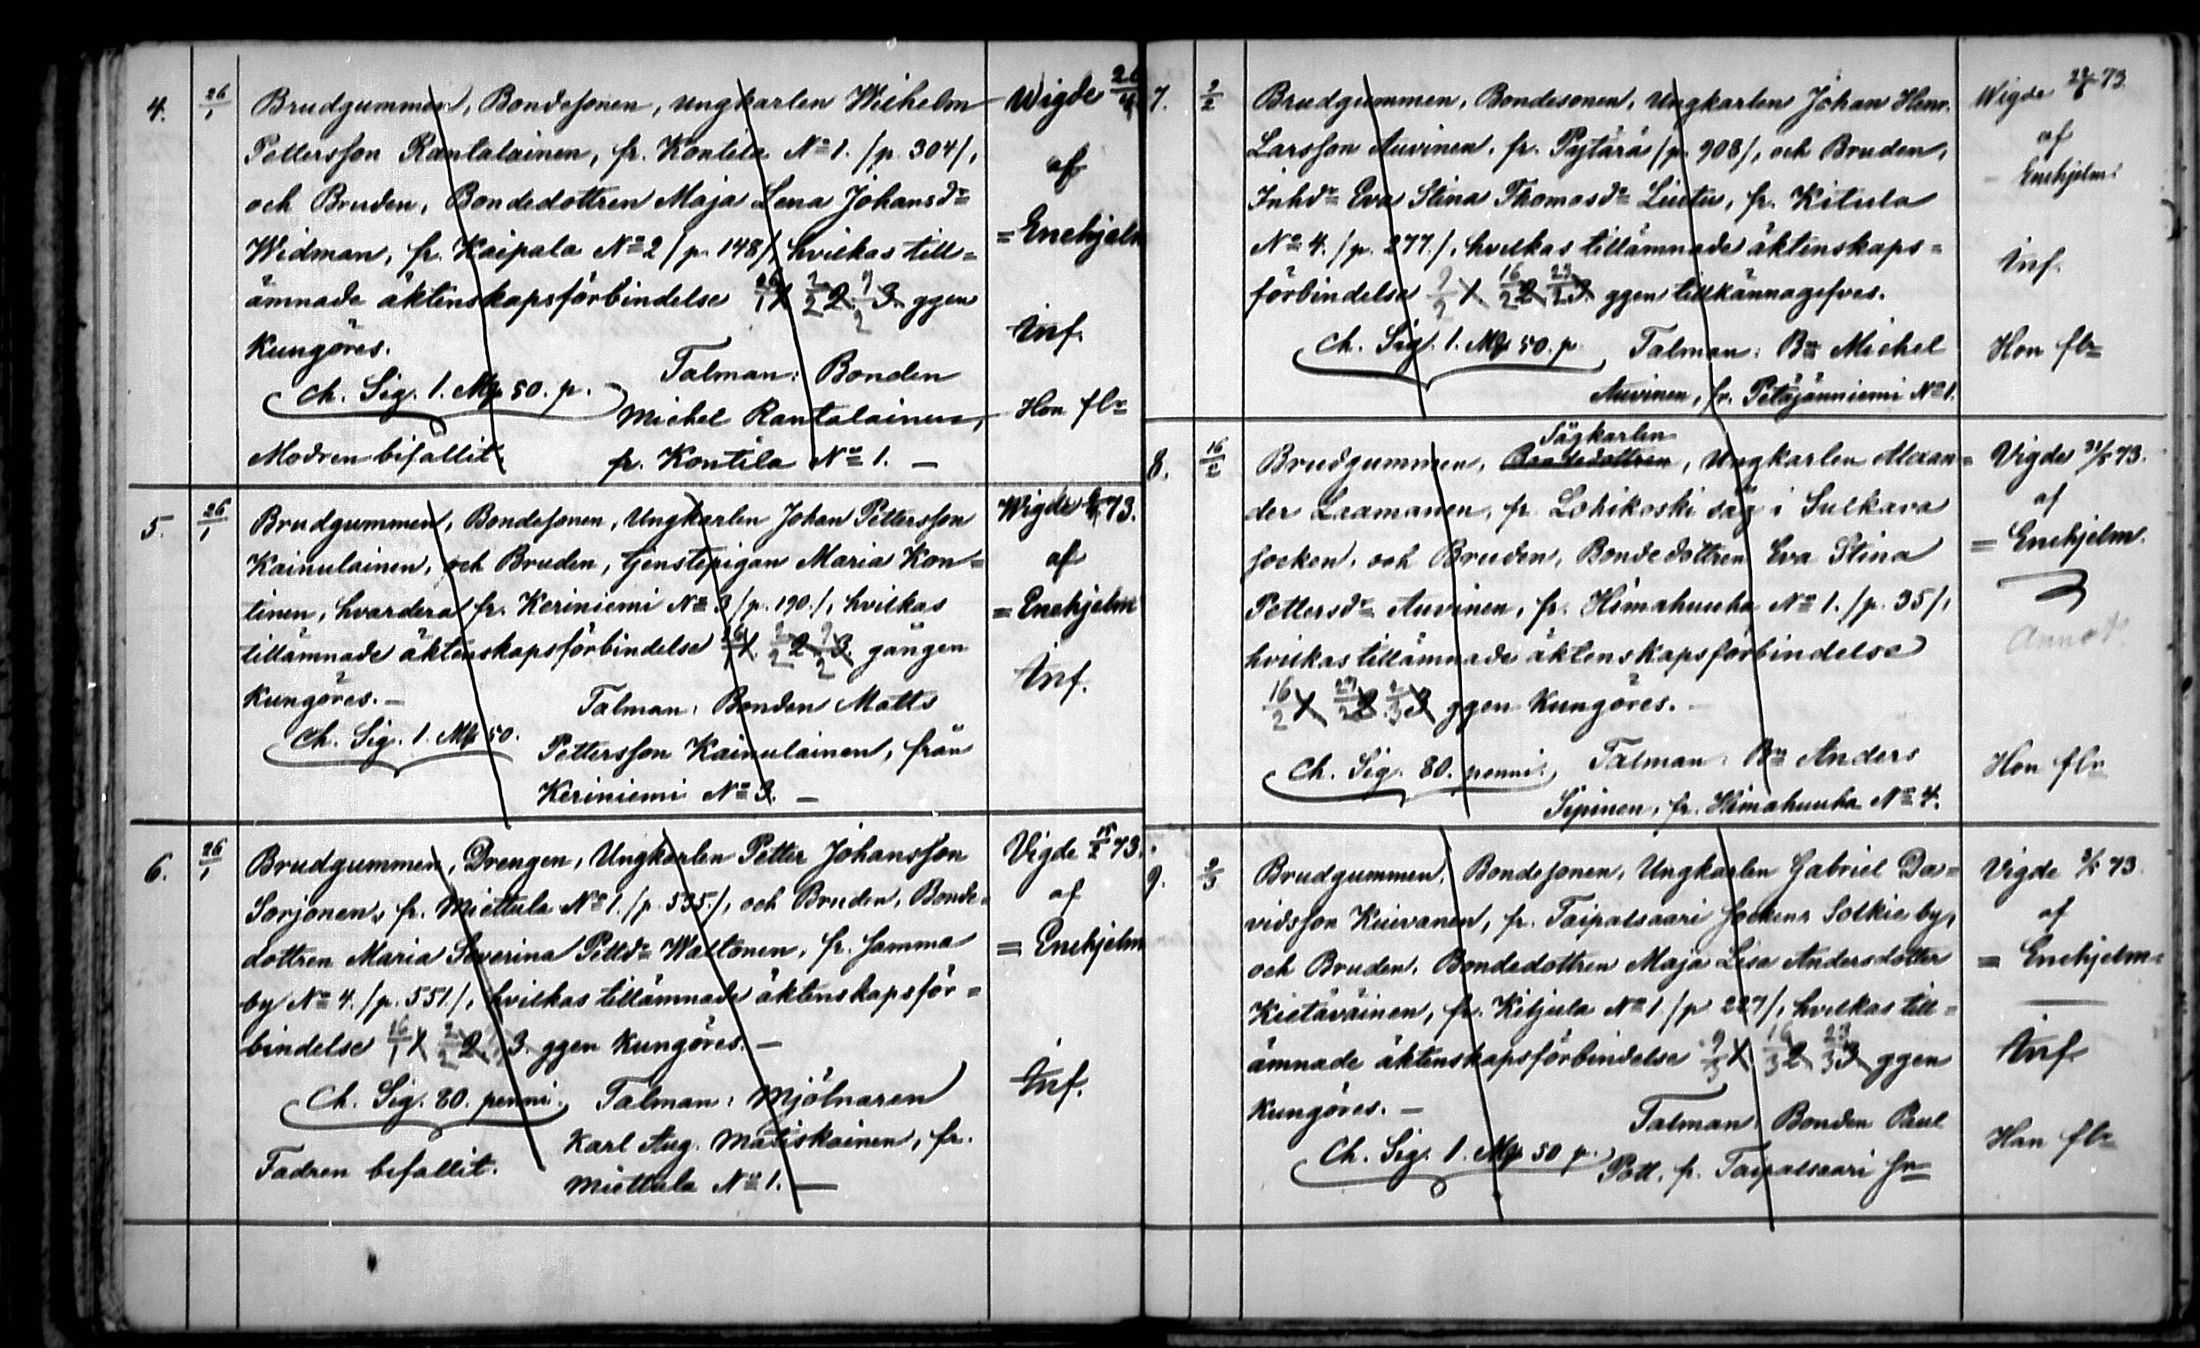 4. 26/1 Brudgummen, Bondesonen, ungkarlen Wilhelm
Pettersson Rantalainen, fr. Kontila No 1. /p. 304/,
och Bruden, Bondedottren Maja Lena Johansdr
Widman, fr. Kaipala No 2 /p. 148/, hvilkas till=
ämnade äktenskapsförbindelse 26/1 1 2/2 2. 9/2 3. ggen
Kungöres.
Ch. Sig. 1. Mk 50. p. Talman: Bonden
Michel Rantalainen,
Modren bifallit. fr. Kontila No 1. —
Wigde
af
= Enehjelm
Inf.
Hon flr
5. 26/1 Brudgummen, Bondesonen, Ungkarlen Johan Pettersson
Kainulainen, och Bruden, tjenstepigan Maria Kon=
tinen, hvardera fr. Keriniemi No 3 /p. 190./, hvilkas
tillämnade äktenskapsförbindelse 26/1 1. 2/2 2 9/2 3. gången
Kungöres. —
Talman: Bonden Matts
Ch. Sig. 1. Mk 50. Pettersson Kainulainen, från
Keriniemi No 3. —
Wigde 73.
af
= Enehjelm
Inf.
6. 26/1 Brudgummen, Drengen, Ungkarlen Petter Johansson
Sorjonen, fr. Miettula No 1. /p. 535./, och Bruden, Bonde=
dottren Maria Severina Pettdr Waltonen, fr. samma
by No 4. /p. 551./, hvilkas tillämnade äktenskapsför=
bindelse 1 2/2 2. 3. ggen Kungöres. —
Ch. Sig. 80. penni. Talman: Mjölnaren
Karl Aug. Matiskainen, fr.
Fadren bifallit. Miettula No 1. —
Vigde 73.
af
= Enehjelm
Inf.
7. 2/2 Brudgummen, Bondesonen, Ungkarlen Johan Henr.
Larsson Auvinen, fr. Pajtärä /p. 908/, och Bruden,
Inhdr Eva Stina Thomasdr Liutu, fr. Kitula
No 4. /p. 277./, hvilkas tillämnade äktenskaps=
förbindelse 1 16/2 2 23/2 3 ggen tillkännagifves.
Ch. Sig. 1. Mk 50. p. Talman: Bn Michel
Auvinen, fr. Petäjänniemi No 1.
Wigde 73.
af
Enehjelm
Inf.
Hon flr
8. 16/2 Brudgummen, Sågkarlen
Bondedottren, Ungkarlen Alexan=
der Laamanen, fr. Lohikoski såg i Sulkava
socken, och Bruden, Bondedottren Eva Stina
Pettersdr Auvinen, fr. Himahuuha No 1. /p. 35/,
hvilkas tillämnade äktenskapsförbindelse
16/2 1 23/2 2 2/3 3 ggen Kungöres. —
Ch. Sig. 80. penni. Talman: Bn Anders
Sipinen, fr. Himahuuha No 4.
Vigde 73.
af
= Enehjelm.
Hon flr
9. 2/3 Brudgummen, Bondesonen, Ungkarlen Gabriel Da=
vidsson Kuivanen, fr. Taipalsaari sockens Solkie by,
och Bruden, Bondedottren Maja Lisa Andersdotter
Kietäväinen, fr. Kiljula No 1 /p. 227/, hvilkas till=
ämnade äktenskapsförbindelse 9/3 1. 16/3 2 23/3 3 ggen
Kungöres. —
Talman: Bonden Paul
Ch. Sig. 1. Mk 50 p. Pott. fr. Taipalsaari sn
Vigde 73.
af
= Enehjelm
Inf.
Han flr